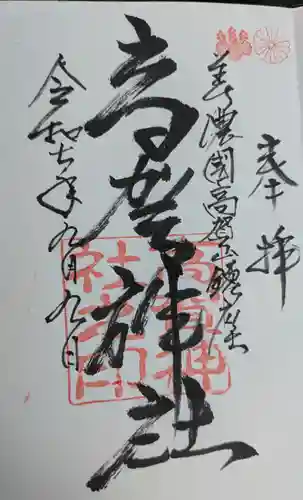 奉拝
美濃國高賀山鎮座
高賀神社
令和七年九月九日
高賀神社之印